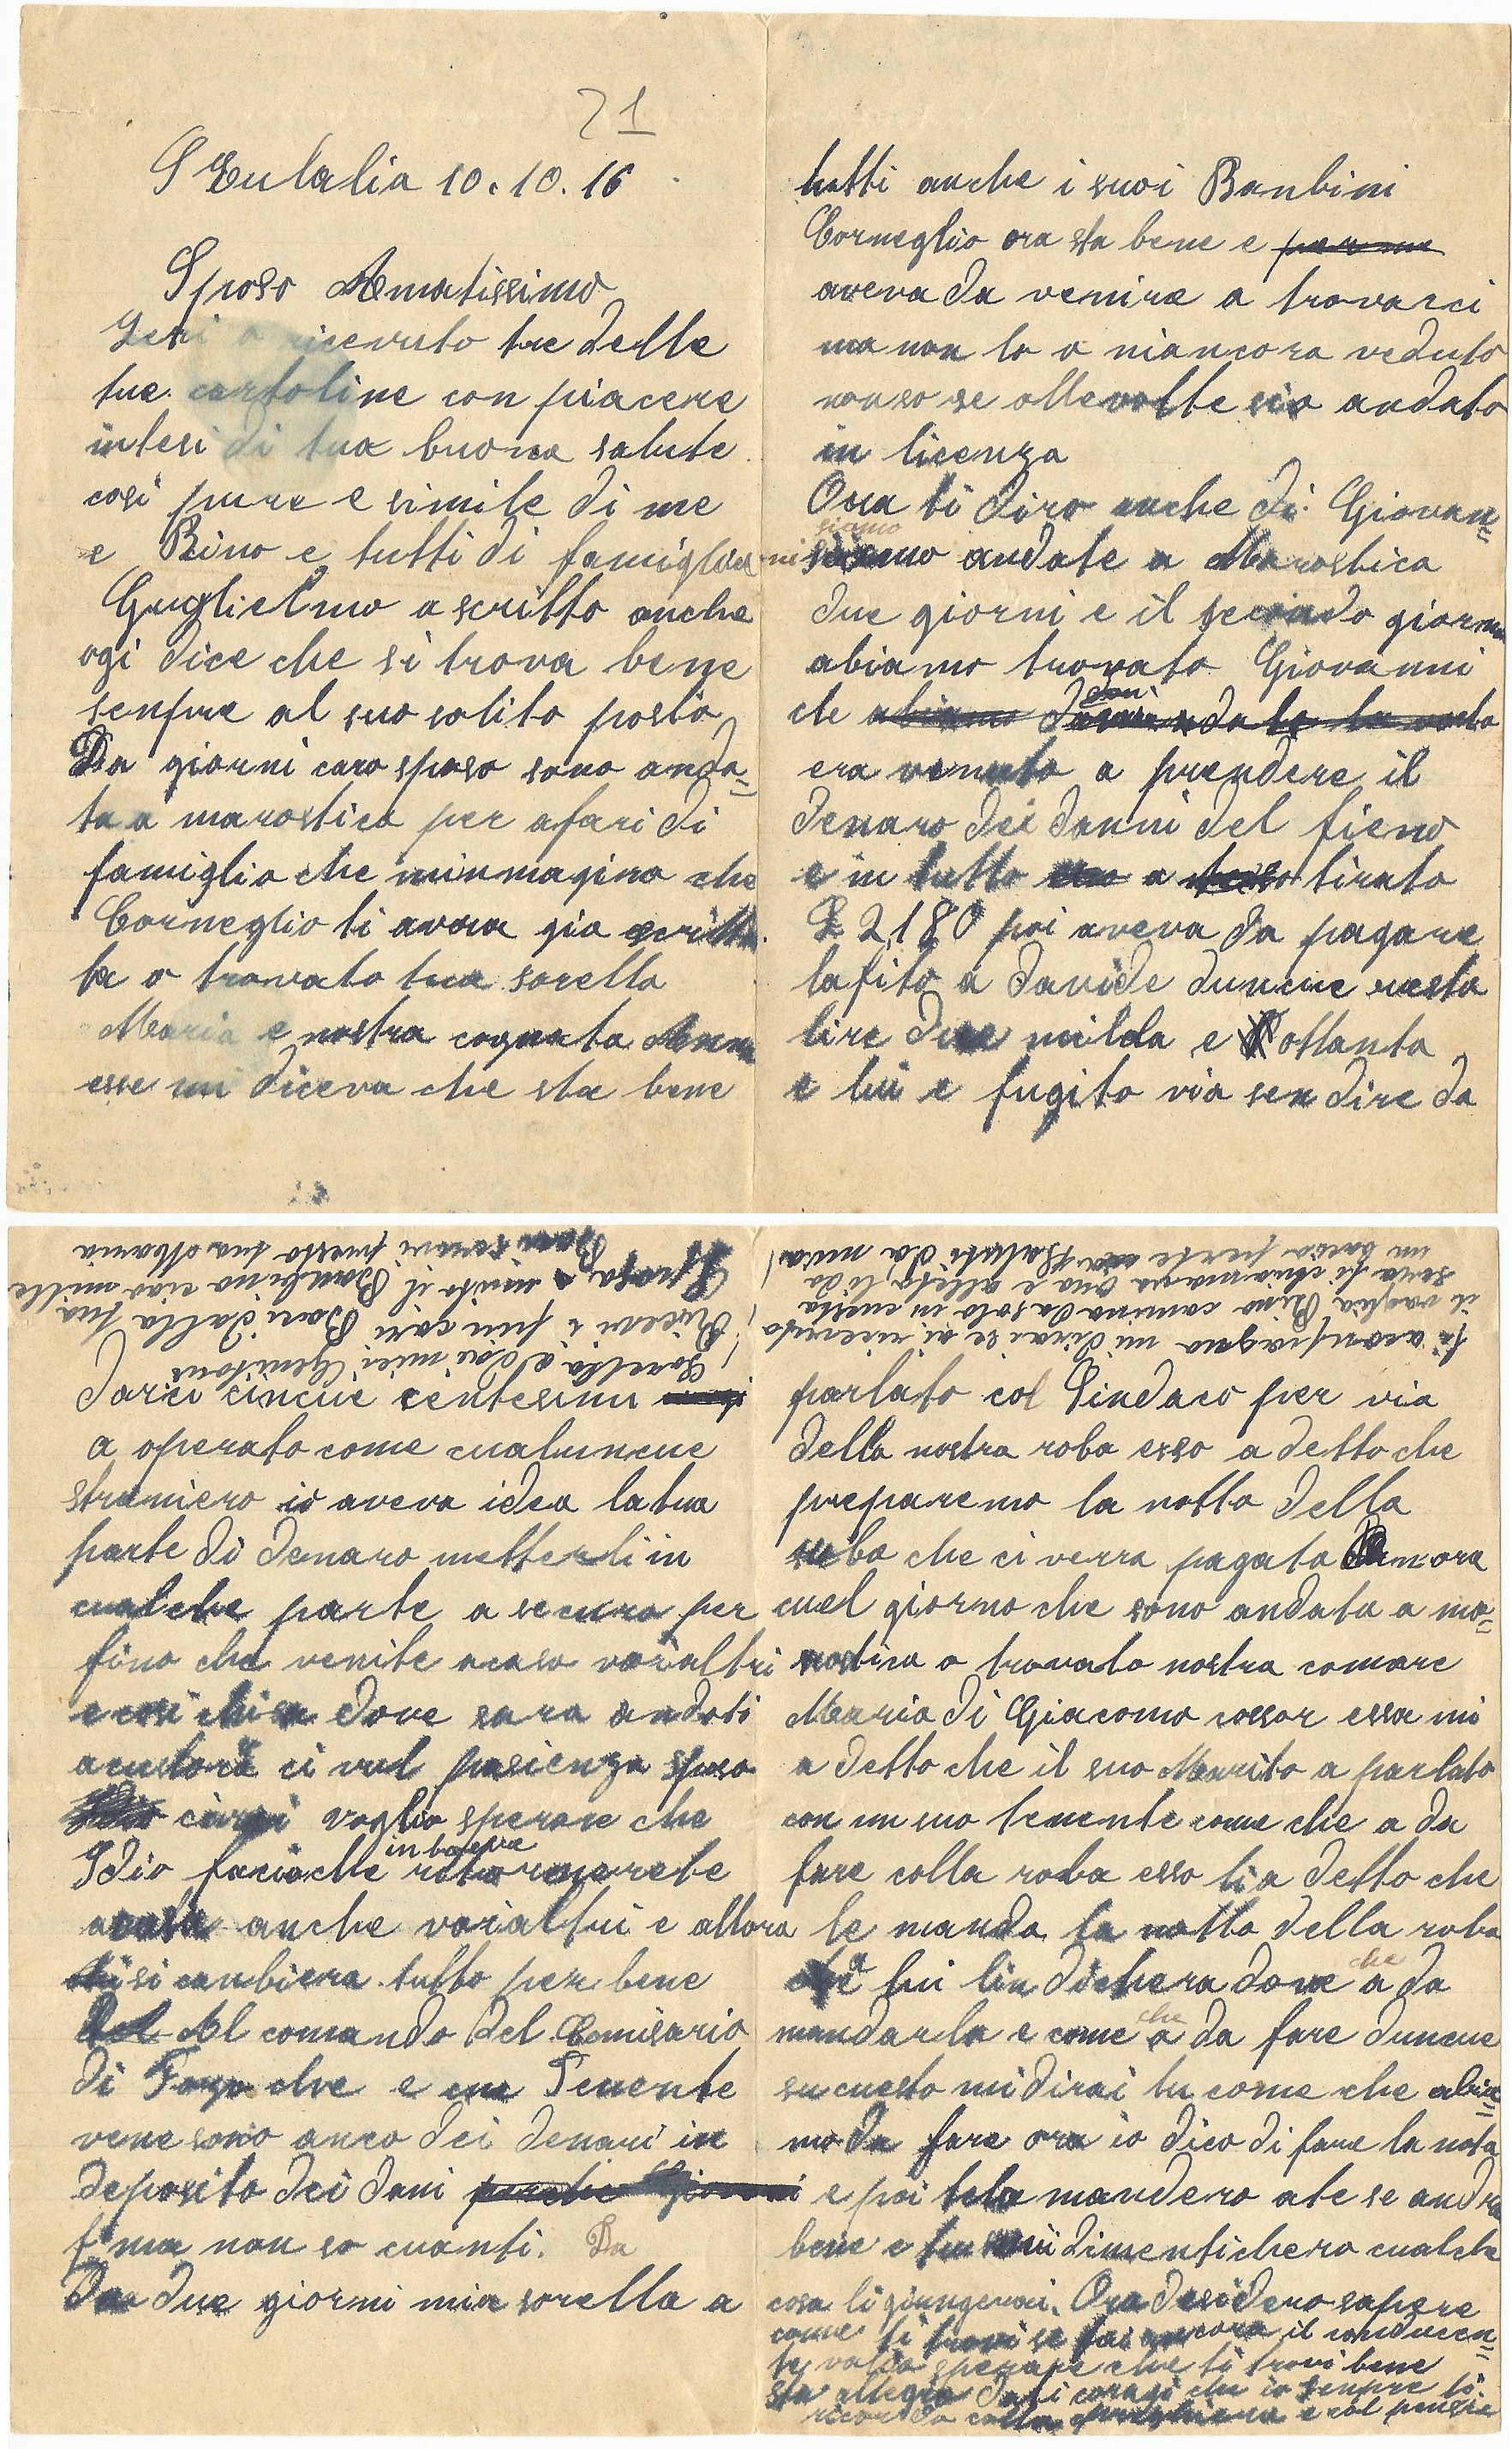 21
S Eulalia 10. 10. 16
Sposo Amatissimo
Jeri o ricevuto tre delle
tue cartoline con piacere
intesi di tua buona salute
cosi pure e simile di me
e Rino e tutti di famiglia
Guglielmo a scritto anche
ogi dice che si trova bene
senpre al suo solito posto
Da giorni caro sposo sono anda=
ta a marostica per afari di
famiglia che minmagino che
Corneglio ti avra gia scritto
la o trovato tua sorella
Maria e nostra cognata Anna
esse mi diceva che sta bene
tutti anche i suoi Banbini
Corneglio ora sta bene e per me
aveva da venire a trovarci
ma non lo o niancora veduto
non so se alle volte sia andato
in licenza
Ora ti diro anche di Giovan=
siamo
ni siamo andate a Marostica
due giorni e il secondo giorno
abiamo trovato Giovanni
che abiamo
era venuto a prendere il
denaro dei danni del fieno
e in tutto a tirato
L 2180 poi aveva da pagare
lafito a Davideduncue resta
lire due milla e ottanta
e lui e fugito via sen dire da
darci cincue centesimi
a operato come cualuncue
straniero io aveva idea la tua
parte di denaro metterli in
cualche parte a securo per
fino che venite acasa voialtri
e cosi chisa dove sara andati
acustodi ci vul pasienza sposo
voglio sperare che
in breve
Idio faciache ritornerete
acasa anche voialtri e allora
si canbiera tutto per bene
Al comando del Comisario
di Foza che e un Tenente
vene sono anco dei denari in
deposito dei dani perche Giovani
ma non so cuanti. Da
Da due giorni mia sorella a
parlato col Sindaco per via
della nostra roba esso a detto che
preparemo la notta della
roba che ci verra pagata ora
cuel giorno che sono andata a ma=
rostica o trovato nostra comare
Maria di Giacomo cossar essa mi
a detto che il suo Marito a parlato
con un suo tenente come che a da
fare colla roba esso li a detto che
le manda la notta della roba
che
che lui lindichera dove a da
che
mandarla e come a da fare duncue
su cuesto mi dirai tu come che abia=
mo da fare ora io dico di fare la nota
e poi tela mandero ate se andra
bene e se mi dimentichero cualche
cosa li giungerai. Ora desidero sapere
come ti trovi se fai ancora il conducen=
te voglio sperare che ti trovi bene
sta allegro dati coragi che io senpre ti
ricordo colla preghiera e col pensie
ti aconpagno mi dirai se ai ricevuto
il vaglia Rino camina da solo in cuesta
sera ti chiamava Ona e alleta li da
un bacio per te Saluti da mia
Sorella e dai miei Genitori
Ricevi i piu cari Baci dalla tua
Sposa e unito il Banbino ciao mille
Baci ricevi presto tua Maria